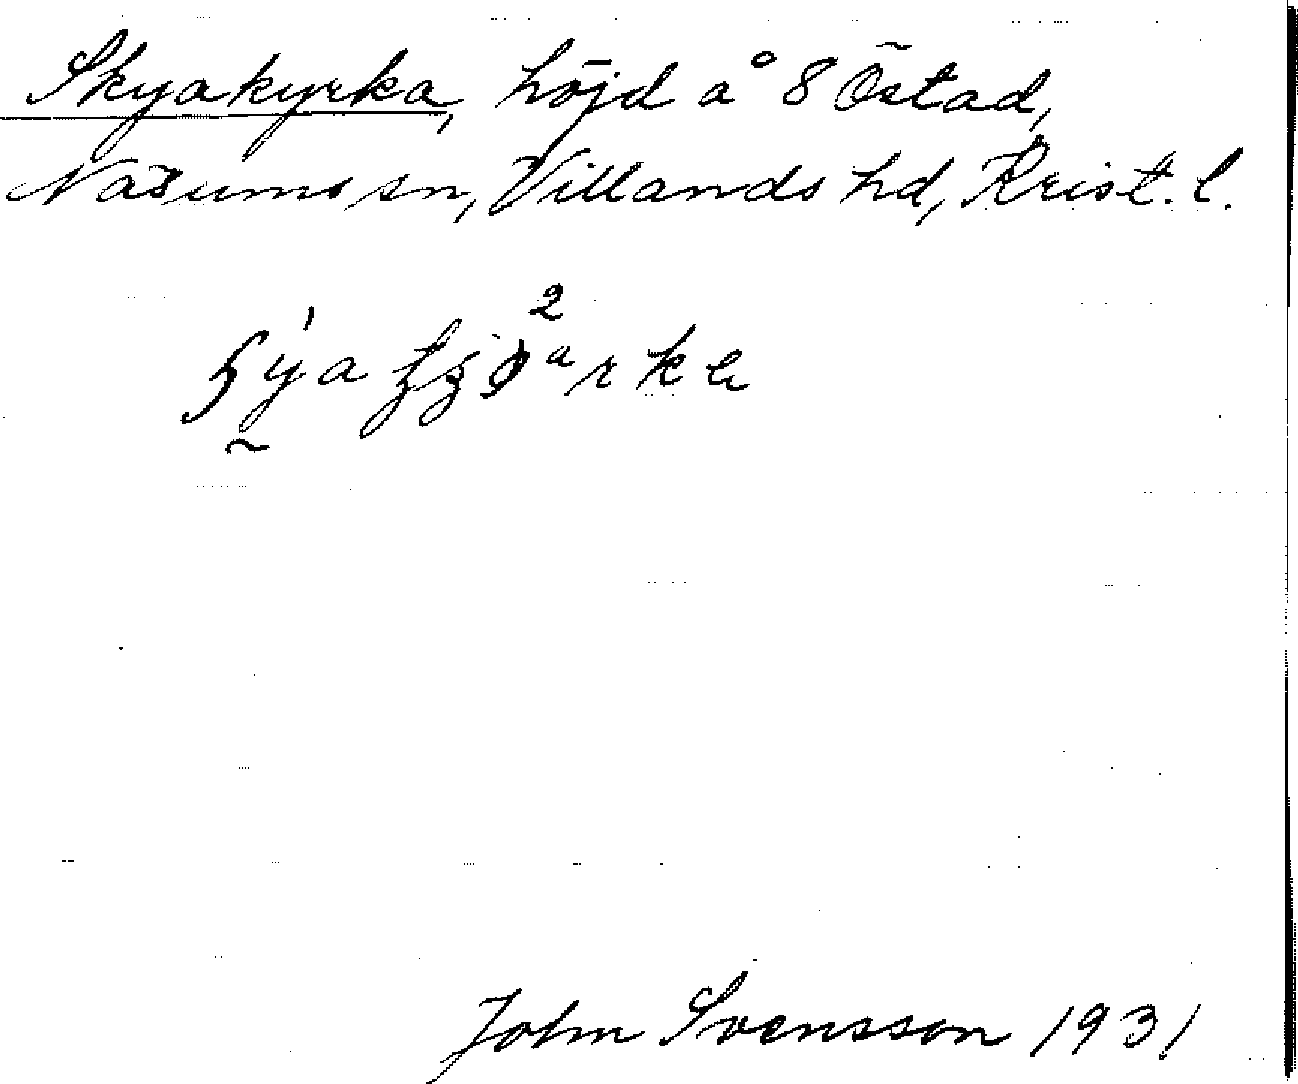 Skyakyrka, höjd å 8 Östad,
Näsums sn, Villands hd, Krist. l.
John Svensson 1931